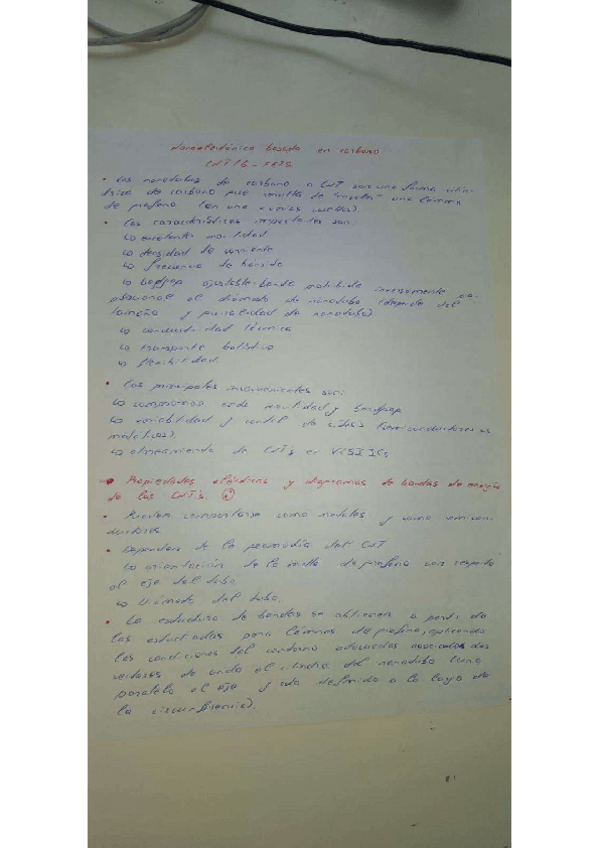 Nanoelectrónica basada en carbono
CNT's - FETS
• Los nanotubos de carbono o CNT son una forma cilín-
drica de carbono que resulta de "enrollar" una lámina
de grafeno (en una o varias vueltas).
• Las características importantes son:
↳ excelente movilidad
↳ densidad de corriente
↳ frecuencia de
↳ bandgap ajustable: banda prohibida inversamente pro-
porcional al diámetro de nanotubo (depende del
tamaño y quiralidad de nanotubo)
↳ conductividad térmica
↳ transporte balístico
↳ flexibilidad.
• Los principales inconvenientes son:
↳ compromiso entre movilidad y bandgap
↳ variabilidad y control de CNTs (semiconductores vs
metálicos).
↳ alineamiento de CNT's en VLSI ICs
• Propiedades eléctricas y diagramas de bandas de energía
de los CNT's.
• Pueden comportarse como metales y como semicon-
ductores.
• Dependen de la geometría del CNT
↳ orientación de la malla de grafeno con respecto
al eje del tubo.
↳ Diámetro del tubo.
• La estructura de bandas se obtienen a partir de
las estudiadas para láminas de grafeno, aplicando
las condiciones del contorno adecuadas asociadas a los
vectores de onda al cilindro del nanotubo (uno
paralelo al eje y otro definido a lo largo de
la circunferencia).